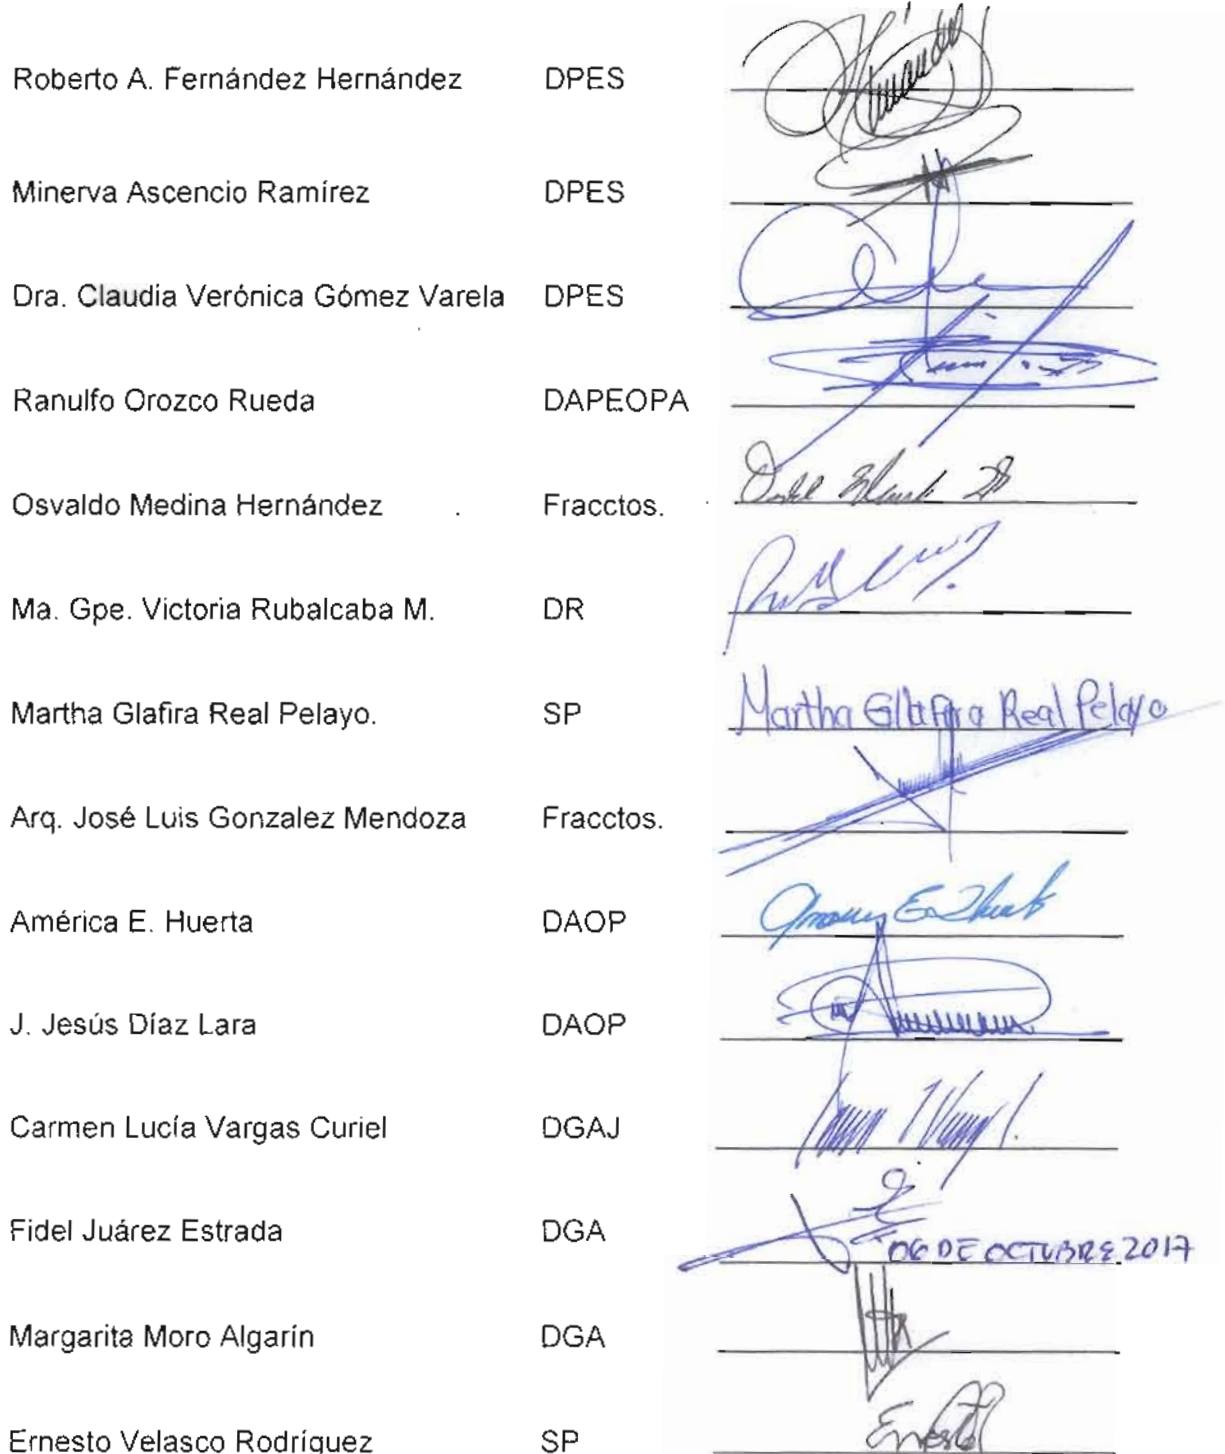 Roberto A. Fernández Hernández DPES
Minerva Ascencio Ramírez DPES
Dra. Claudia Verónica Gómez Varela DPES
Ranulfo Orozco Rueda DAPEOPA
Osvaldo Medina Hernández Fracctos.
Ma. Gpe. Victoria Rubalcaba M. DR
Martha Glafira Real Pelayo. SP Martha Glafira Real Pelayo
Arq. José Luis Gonzalez Mendoza Fracctos.
América E. Huerta DAOP
J. Jesús Díaz Lara DAOP
Carmen Lucía Vargas Curiel DGAJ
Fidel Juárez Estrada DGA 06 DE OCTUBRE 2017
Margarita Moro Algarín DGA
Ernesto Velasco Rodríguez SP